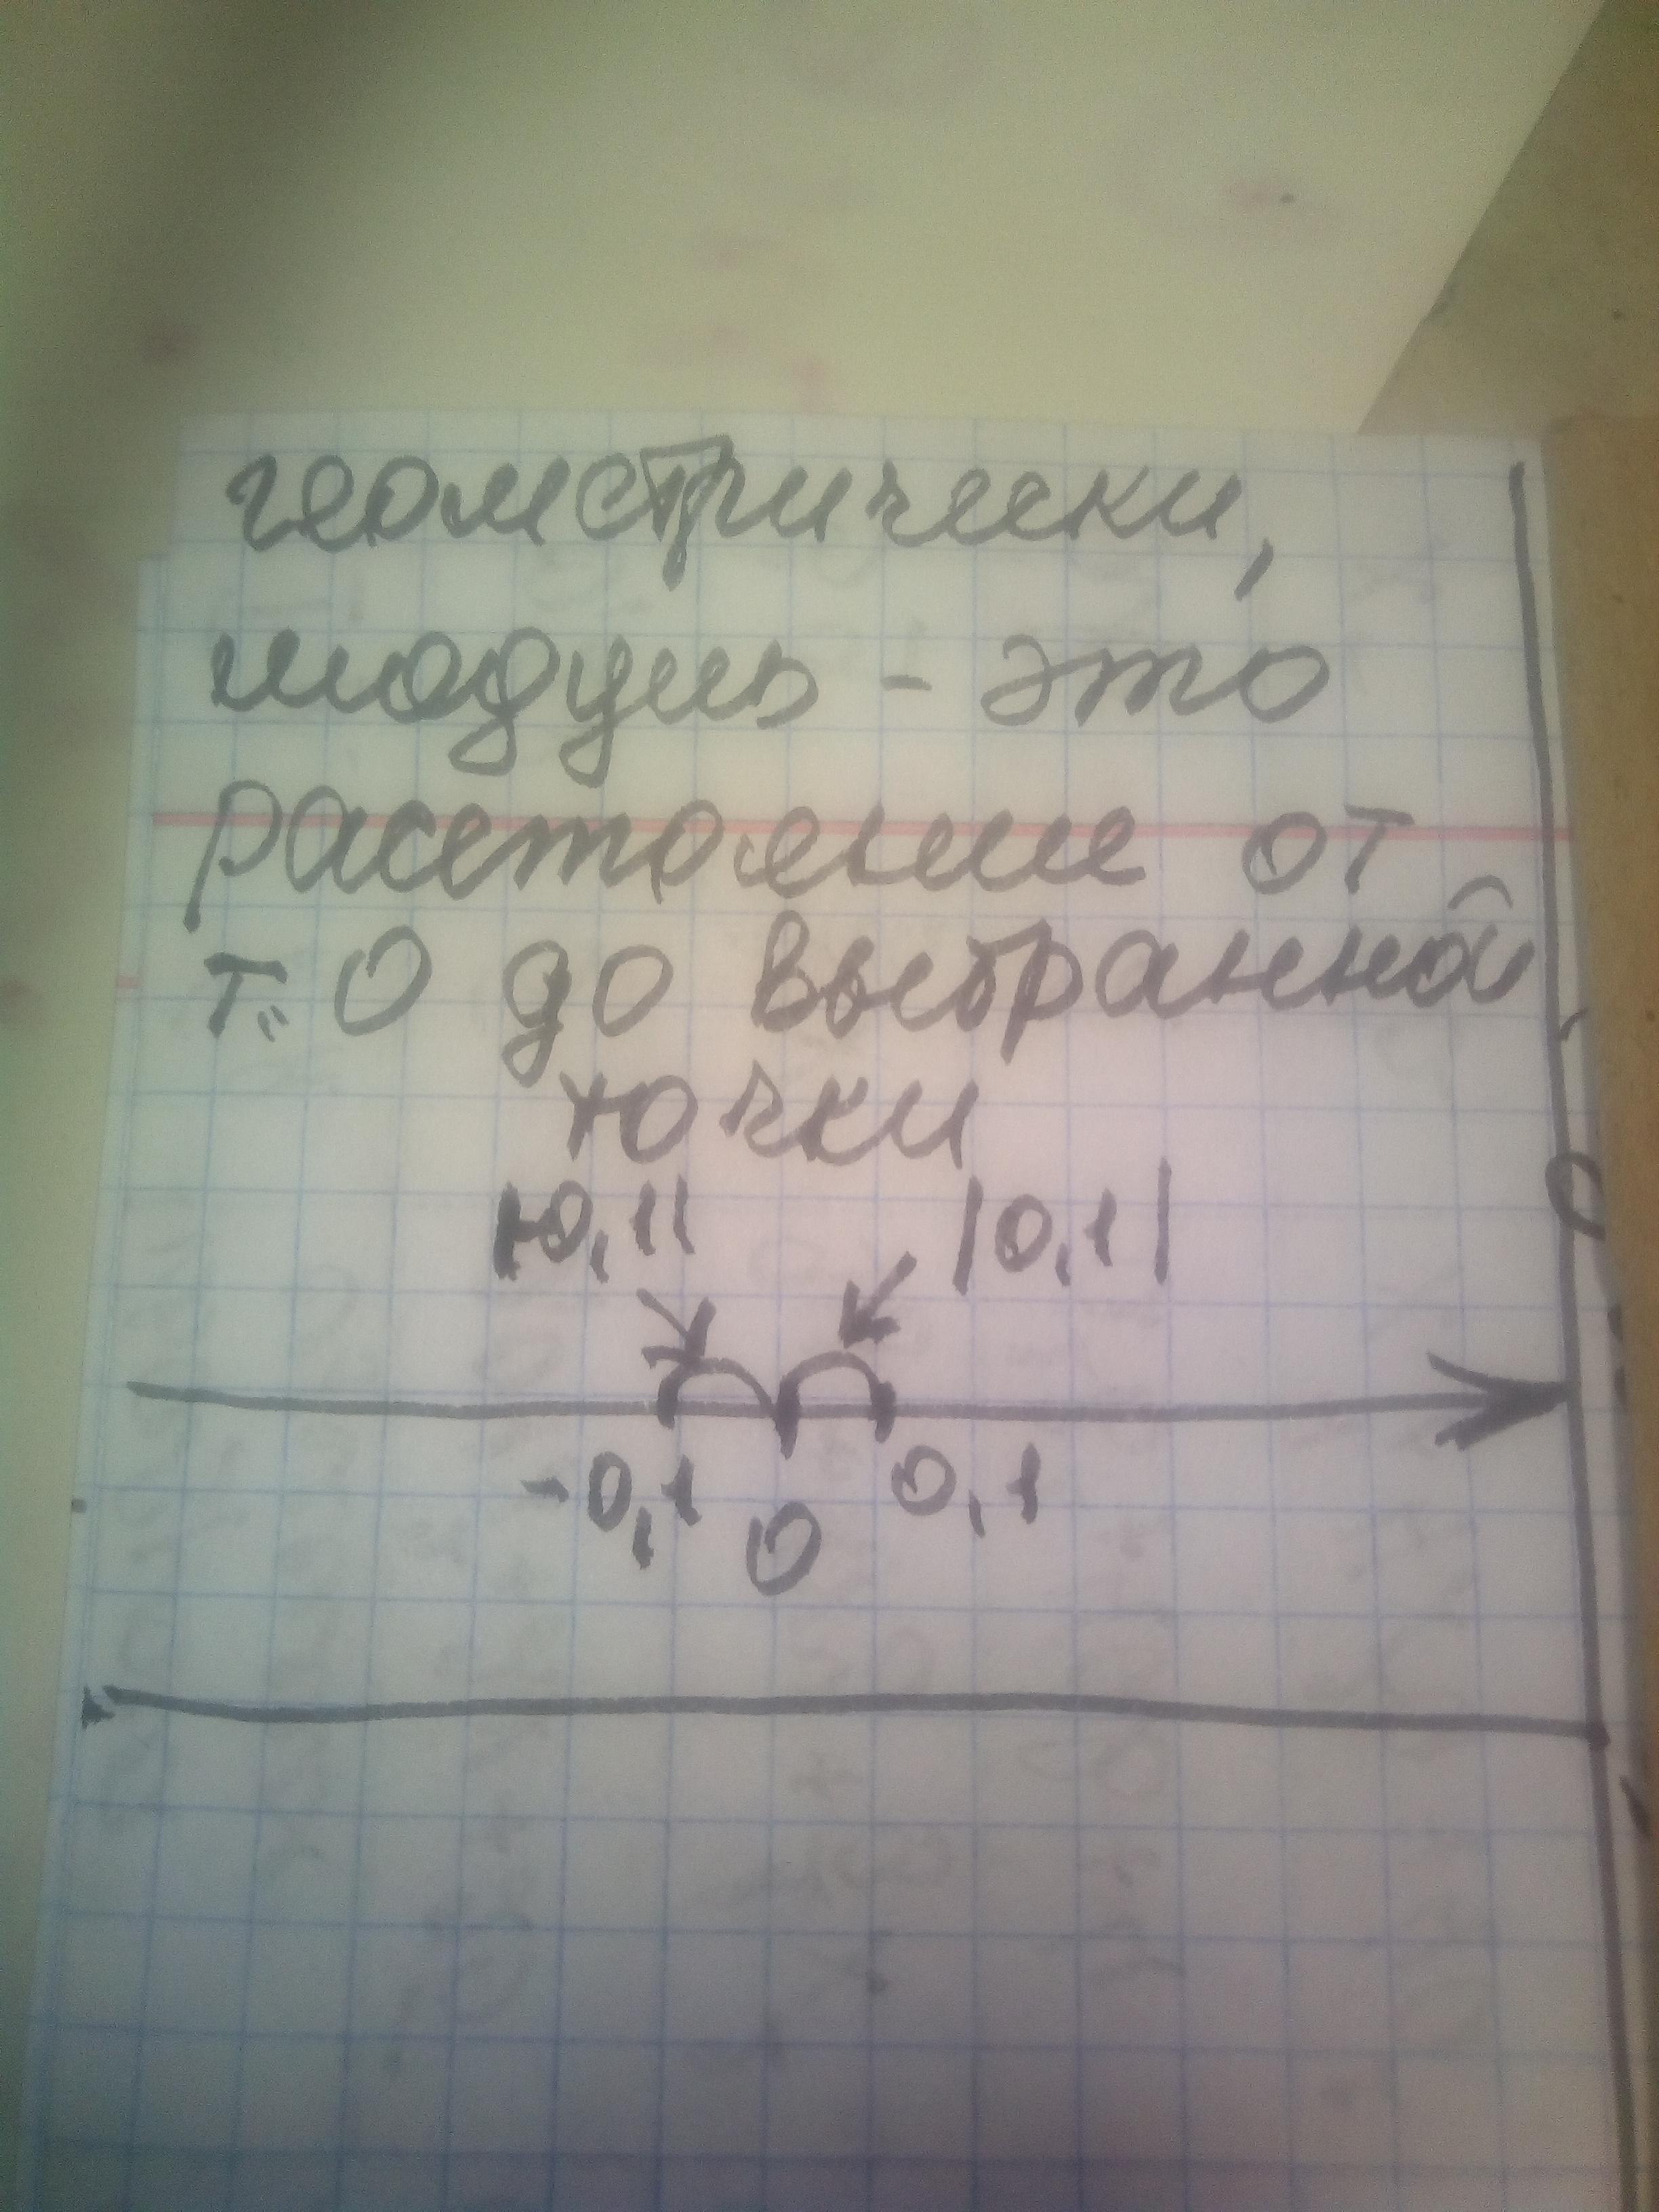 геометрически,
модуль - это
расстояние от
т. 0 до выбранной
точки
|-0,1| |0,1|
-0,1 0 0,1